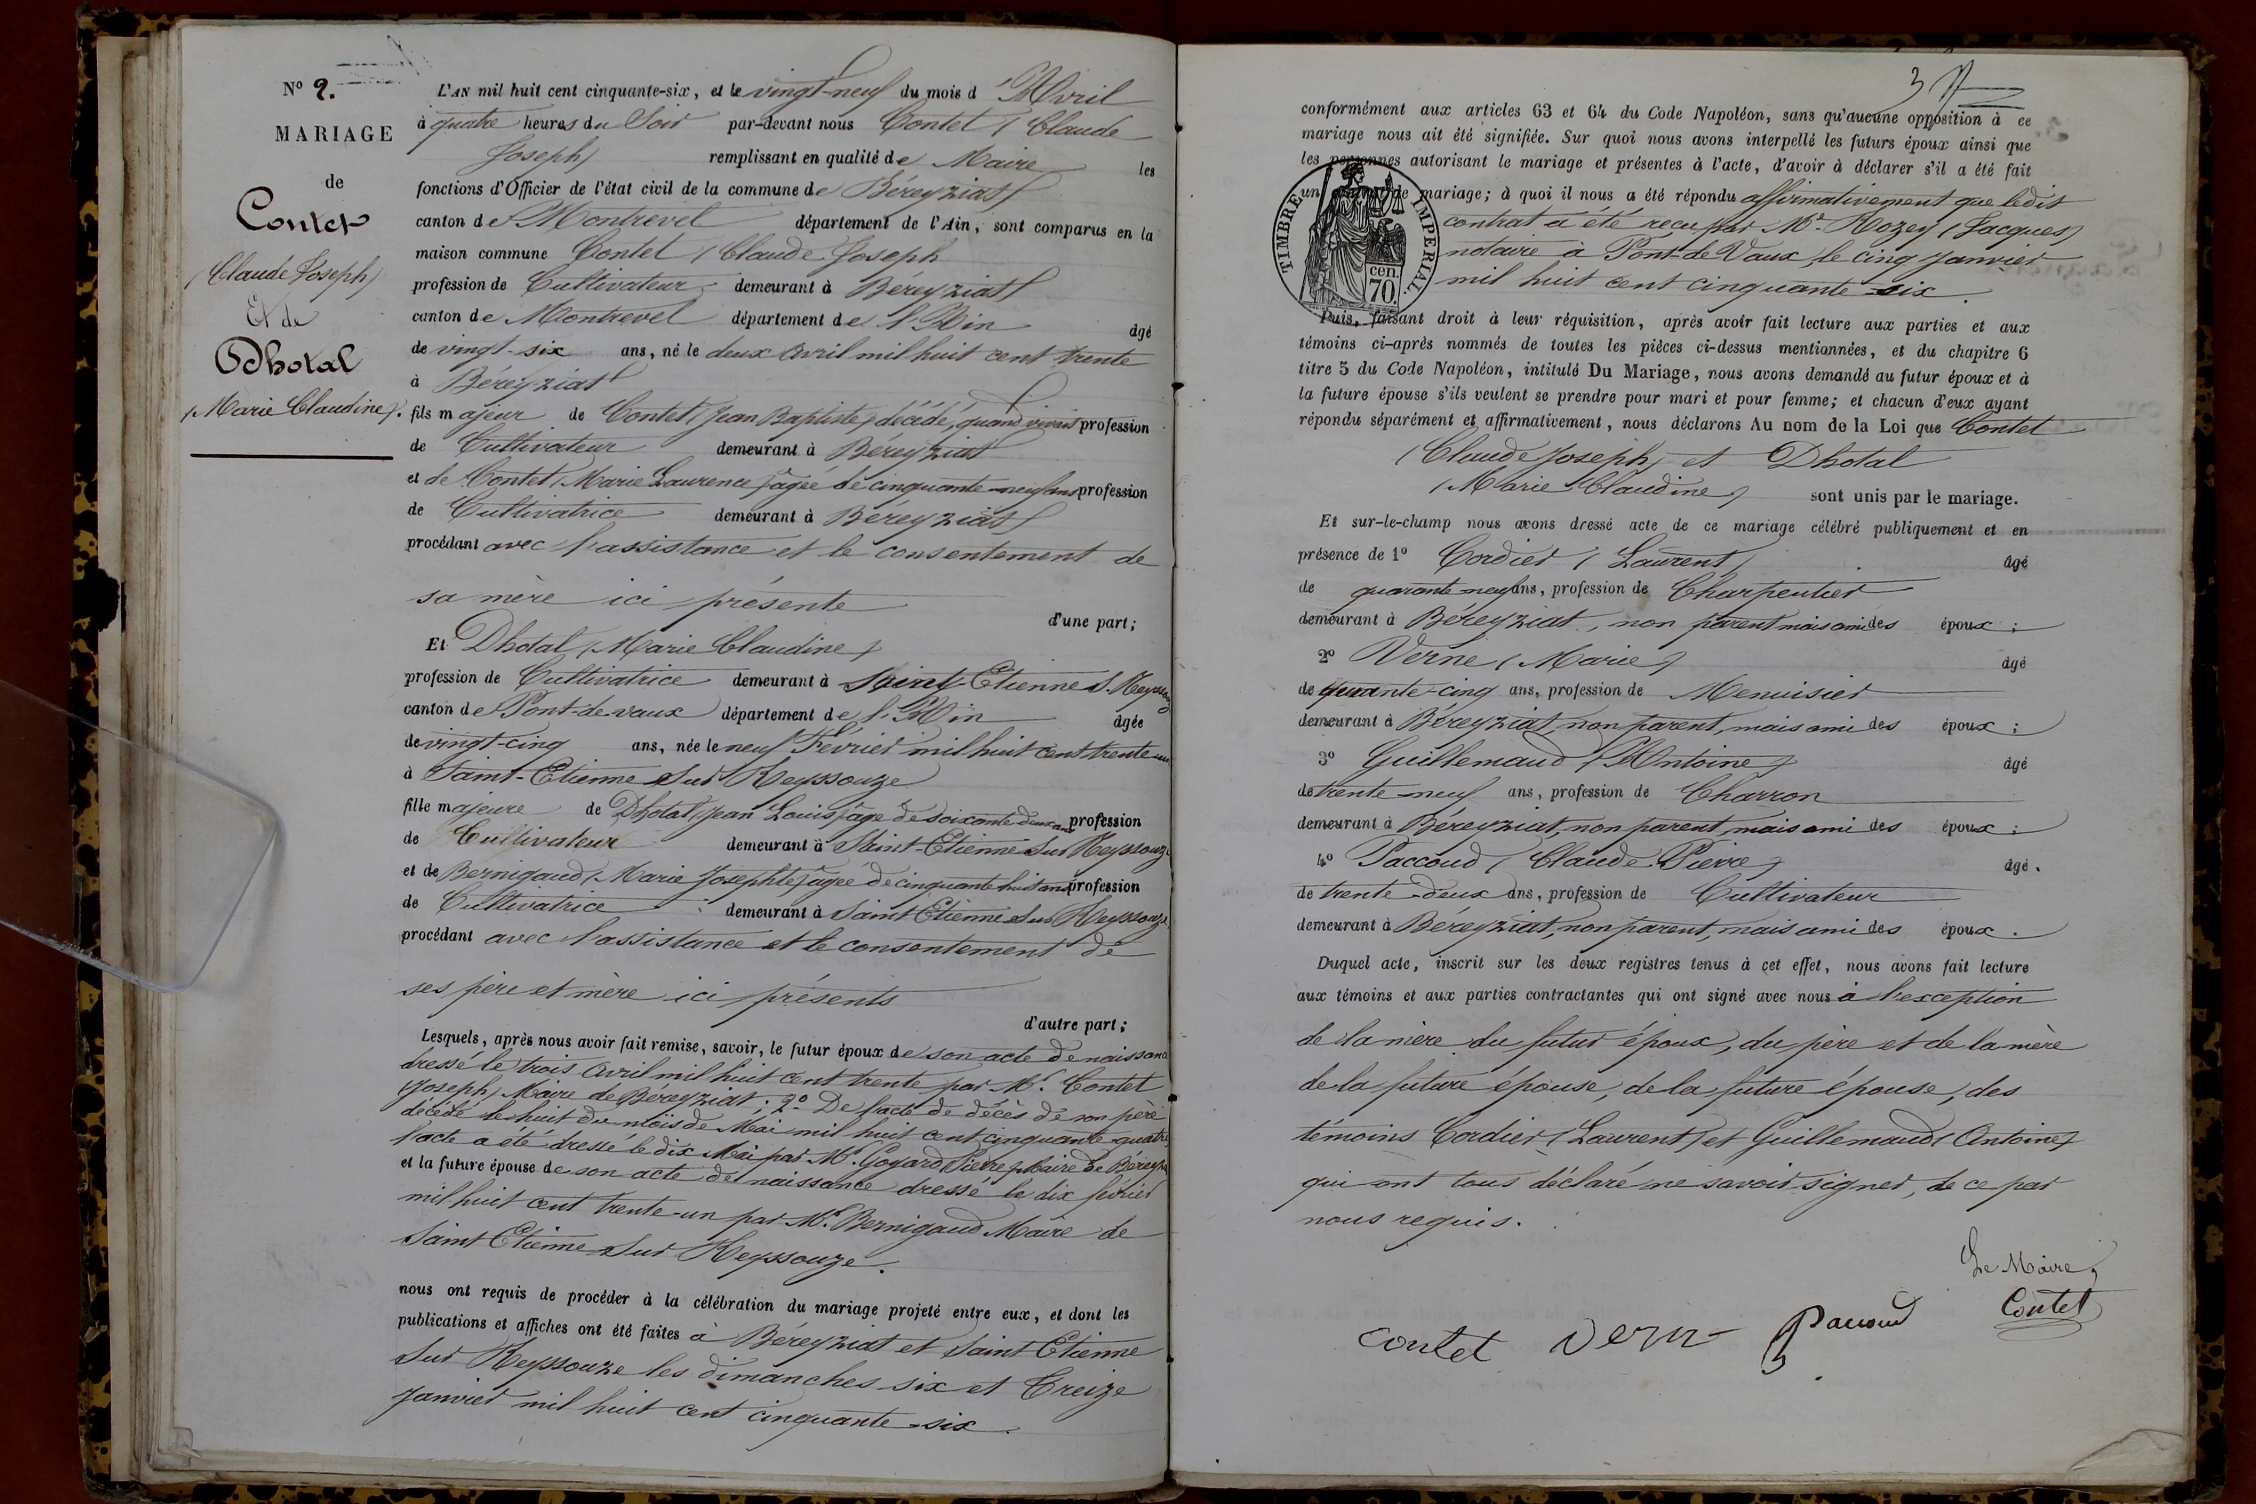 N° 2.
MARIAGE
de
Contet
(Claude Joseph)
Et de
Dhotal
(Marie Claudine).
L'AN mil huit cent cinquante-six, et le vingt-neuf du mois d'Avril
à quatre heures du Soir par-devant nous Contet (Claude
Joseph) remplissant en qualité de Maire les
fonctions d'Officier de l'état civil de la commune de Béreyziat
canton de Montrevel département de l'Ain, sont comparus en la
maison commune Contet (Claude Joseph
profession de Cultivateur demeurant à Béreyziat
canton de Montrevel département de l'Ain âgé
de vingt-six ans, né le deux avril mil huit cent trente
à Béreyziat
fils majeur de Contet (Jean Baptiste) décédé, quand vivait profession
de Cultivateur demeurant à Béreyziat
et de Contet (Marie Laurence) âgée de cinquante-neuf ans profession
de Cultivatrice demeurant à Béreyziat
procédant avec l'assistance et le consentement de
sa mère ici présente
d'une part;
Et Dhotal (Marie Claudine)
profession de Cultivatrice demeurant à Saint-Etienne S. Reyssouze
canton de Pont-de-vaux département de l'Ain âgée
de vingt-cinq ans, née le neuf Février mil huit cent trente-un
à Saint-Etienne Sur Reyssouze
fille majeure de Dhotal (Jean Louis) âgé de soixante deux ans profession
de Cultivateur demeurant à Saint-Etienne Sur Reyssouze
et de Bernigaud (Marie Josephte) âgée de cinquante huit ans profession
de Cultivatrice demeurant à Saint Etienne Sur Reyssouze
procédant avec l'assistance et le consentement de
ses père et mère ici présents
d'autre part;
Lesquels, après nous avoir fait remise, savoir, le futur époux de son acte de naissance
dressé le trois avril mil huit cent trente par Mr. Contet
(Joseph) Maire de Béreyziat; 2° De l'acte de décès de son père
décédé le huit du mois de Mai mil huit cent cinquante-quatre
l'acte a été dressé le dix Mai par Mr. Goyard Pierre, Maire de Béreyziat
et la future épouse de son acte de naissance dressé le dix février
mil huit cent trente-un par Mr. Bernigaud Maire de
Saint Etienne Sur Reyssouze.
nous ont requis de procéder à la célébration du mariage projeté entre eux, et dont les
publications et affiches ont été faites à Béreyziat et Saint Etienne
Sur Reyssouze les dimanches six et Treize
janvier mil huit cent cinquante-six.
conformément aux articles 63 et 64 du Code Napoléon, sans qu'aucune opposition à ce
mariage nous ait été signifiée. Sur quoi nous avons interpellé les futurs époux ainsi que
les personnes autorisant le mariage et présentes à l'acte, d'avoir à déclarer s'il a été fait
un de mariage; à quoi il nous a été répondu affirmativement que ledit
contrat a été reçu par Me. Rozey (Jacques)
notaire à Pont-de Vaux, le cinq janvier
mil huit cent cinquante-six.
TIMBRE IMPERIAL.
70 cen.
Puis, faisant droit à leur réquisition, après avoir fait lecture aux parties et aux
témoins ci-après nommés de toutes les pièces ci-dessus mentionnées, et du chapitre 6
titre 5 du Code Napoléon, intitulé Du Mariage, nous avons demandé au futur époux et à
la future épouse s'ils veulent se prendre pour mari et pour femme; et chacun d'eux ayant
répondu séparément et affirmativement, nous déclarons Au nom de la Loi que Contet
(Claude Joseph) et Dhotal
(Marie Claudine) sont unis par le mariage.
Et sur-le-champ nous avons dressé acte de ce mariage célébré publiquement et en
présence de 1° Cordier (Laurent) âgé
de quarante-neuf ans, profession de Charpentier
demeurant à Béreyziat, non parent mais ami des époux;
2° Verne (Marie) âgé
de quarante-cinq ans, profession de Menuisier
demeurant à Béreyziat, non parent, mais ami des époux;
3° Guillemaud (Antoine) âgé
de trente-neuf ans, profession de Charron
demeurant à Béreyziat, non parent, mais ami des époux;
4° Paccoud (Claude Pierre) âgé.
de trente-deux ans, profession de Cultivateur
demeurant à Béreyziat, non parent, mais ami des époux.
Duquel acte, inscrit sur les deux registres tenus à cet effet, nous avons fait lecture
aux témoins et aux parties contractantes qui ont signé avec nous à l'exception
de la mère du futur époux, du père et de la mère
de la future épouse, de la future épouse, des
témoins Cordier (Laurent) et Guillemaud (Antoine)
qui ont tous déclaré ne savoir signer, de ce par
nous requis.
Le Maire,
Contet
contet vern Paccoud